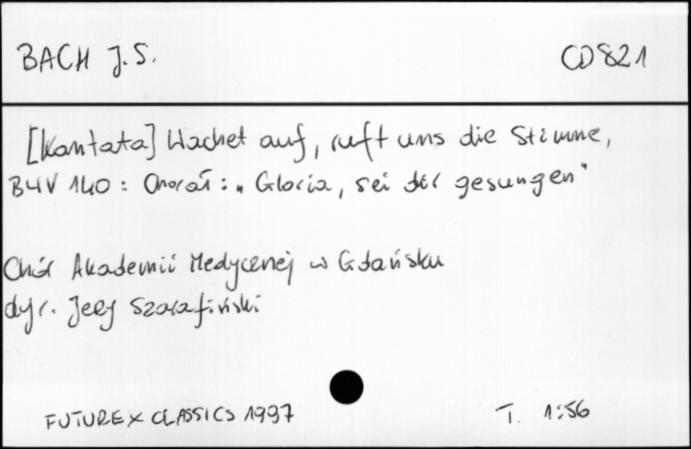 BACH J.S. CD 821
[Kantata] Wachet auf, ruft uns die Stimme,
BWV 140 : Chorał : „Gloria, sei dir gesungen"
Chór Akademii Medycznej w Gdańsku
dyr. Jerzy Szarafiński
FUTUREX CLASSICS 1997 T. 1:56